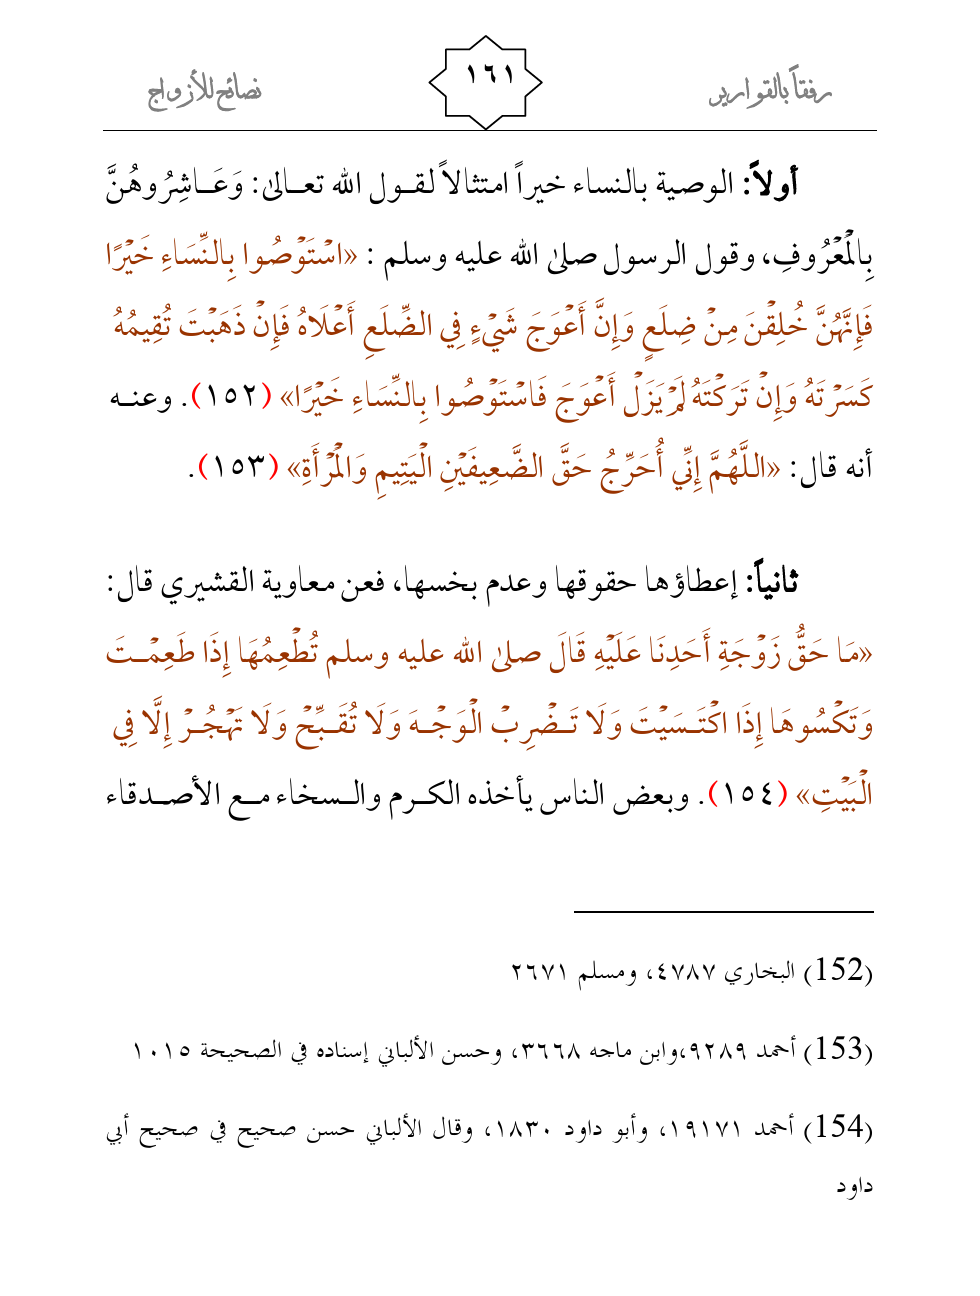 رفقاً بالقوارير ١٦١ نصائح للأزواج
أولاً: الوصية بالنساء خيراً امتثالاً لقول الله تعالى: وَعَاشِرُوهُنَّ
بِالْمَعْرُوفِ، وقول الرسول صلى الله عليه وسلم : «اسْتَوْصُوا بِالنِّسَاءِ خَيْرًا
فَإِنَّهُنَّ خُلِقْنَ مِنْ ضِلَعٍ وَإِنَّ أَعْوَجَ شَيْءٍ فِي الضِّلَعِ أَعْلَاهُ فَإِنْ ذَهَبْتَ تُقِيمُهُ
كَسَرْتَهُ وَإِنْ تَرَكْتَهُ لَمْ يَزَلْ أَعْوَجَ فَاسْتَوْصُوا بِالنِّسَاءِ خَيْرًا» (١٥٢). وعنه
أنه قال: «اللَّهُمَّ إِنِّي أُحَرِّجُ حَقَّ الضَّعِيفَيْنِ الْيَتِيمِ وَالْمَرْأَةِ» (١٥٣).
ثانياً: إعطاؤها حقوقها وعدم بخسها، فعن معاوية القشيري قال:
«مَا حَقُّ زَوْجَةِ أَحَدِنَا عَلَيْهِ قَالَ صلى الله عليه وسلم تُطْعِمُهَا إِذَا طَعِمْتَ
وَتَكْسُوهَا إِذَا اكْتَسَيْتَ وَلَا تَضْرِبْ الْوَجْهَ وَلَا تُقَبِّحْ وَلَا تَهْجُرْ إِلَّا فِي
الْبَيْتِ» (١٥٤). وبعض الناس يأخذه الكرم والسخاء مع الأصدقاء
(152) البخاري ٤٧٨٧، ومسلم ٢٦٧١
(153) أحمد ٩٢٨٩،وابن ماجه ٣٦٦٨، وحسن الألباني إسناده في الصحيحة ١٠١٥
(154) أحمد ١٩١٧١، وأبو داود ١٨٣٠، وقال الألباني حسن صحيح في صحيح أبي
داود